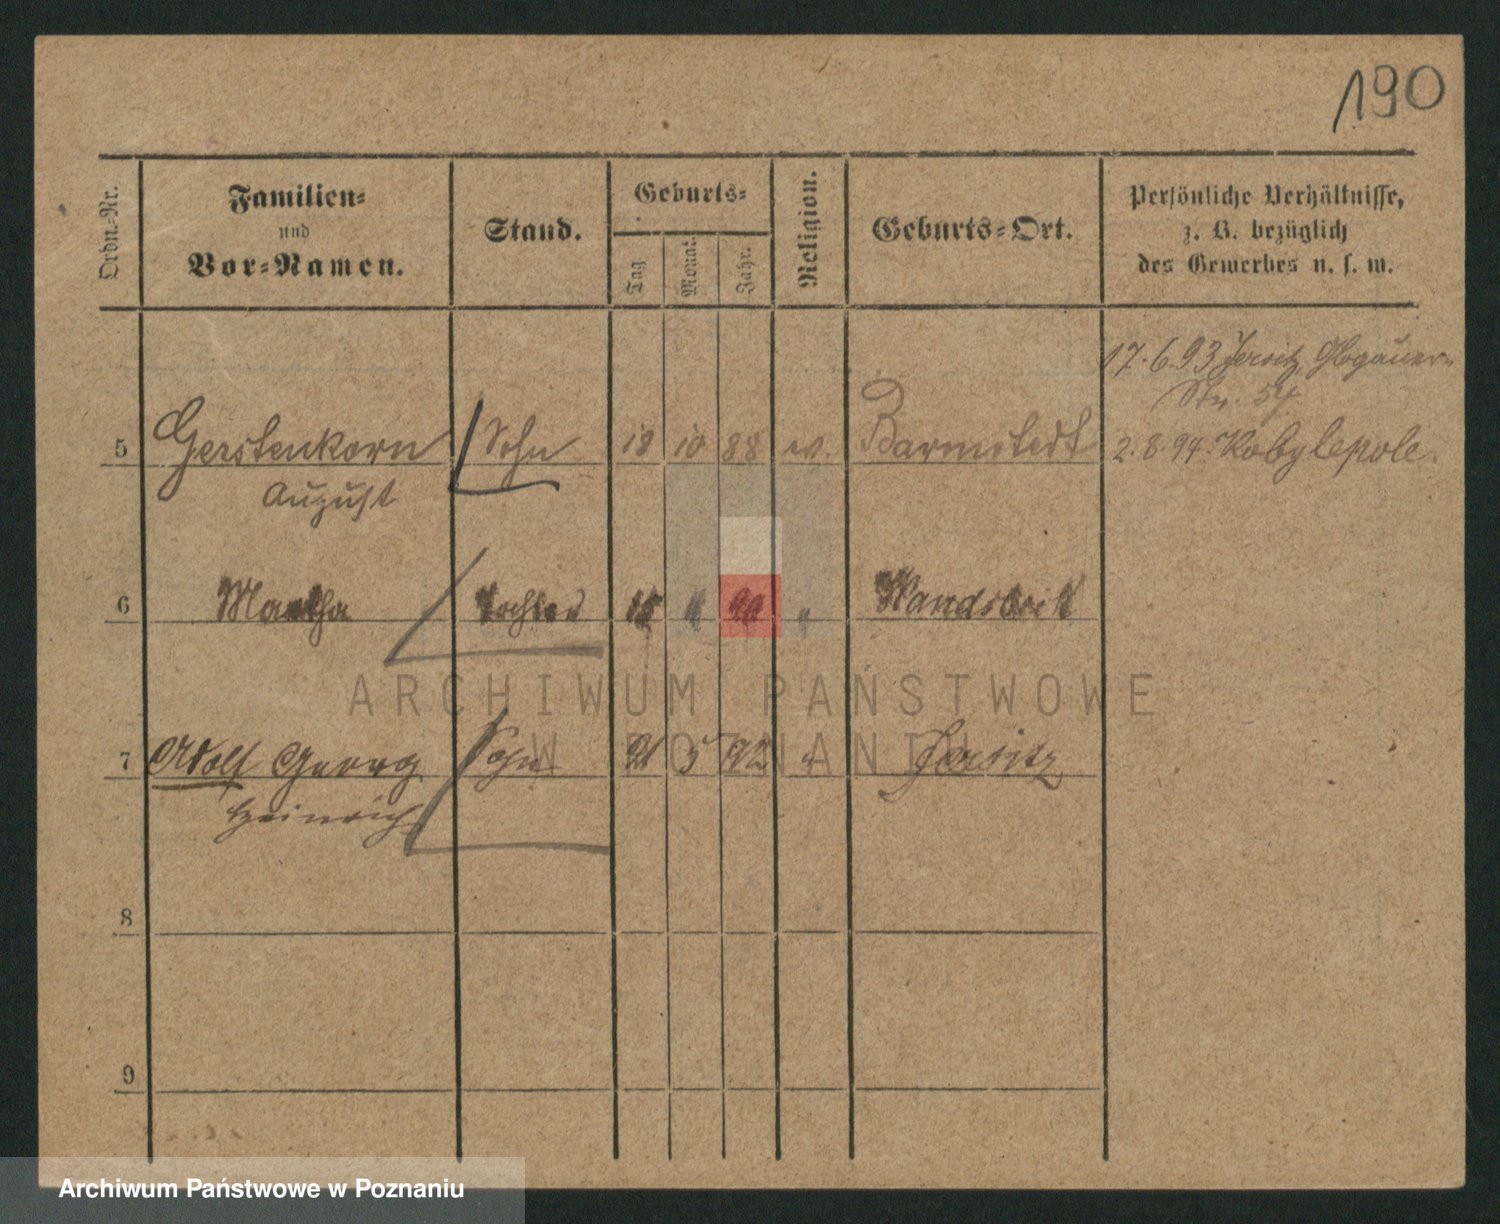 190
Ordn.-Nr.
Familien-
und
Vor-Namen.
Stand.
Geburts-
Tag
Monat.
Jahr.
Religion.
Geburts-Ort.
Persönliche Verhältnisse,
z. B. bezüglich
des Gewerbes u. s. w.
17.6.93 Jersitz Glogauer-
Str. 54
5 Gerstenkorn Sohn 18 10 88 ev. Barmstedt 2.8.94. Kobylepole.
August
6 Martha Tochter 90 " Wandsbeck
ARCHIWUM PAŃSTWOWE
W POZNANIU
7 Adolf Georg Sohn 21 5 92 " Jersitz
Heinrich
8
9
Archiwum Państwowe w Poznaniu